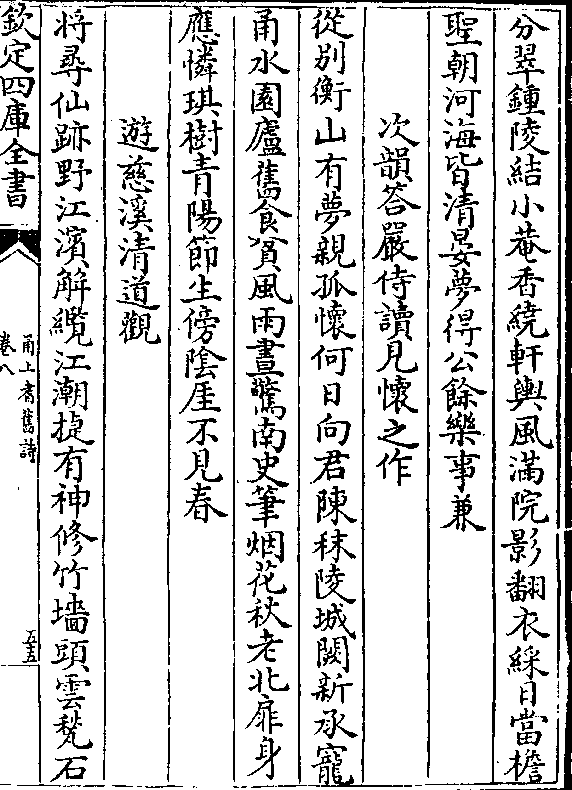 分翠鍾陵結小菴香繞軒輿風滿院影翻衣綵日當檐
聖朝河海皆清晏夢得公餘樂事兼
次韻答嚴侍讀見懷之作
從别衡山有夢親孤懷何日向君陳秣陵城闕新承寵
甬水園廬舊食貧風雨晝驚南史筆烟花秋老北扉身
應憐琪樹青陽節生傍陰厓不見春
遊慈溪清道觀
将尋仙跡野江濱解纜江潮捷有神修竹墻頭雲甃石
欽定四庫全書
甬上耆舊詩
卷八
五五